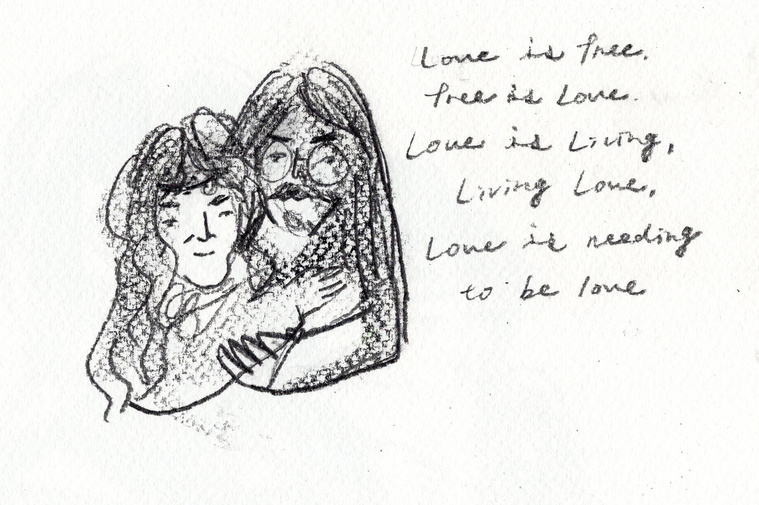 Love is free.
free is Love.
Love is Living,
Living Love,
Love is needing
to be love